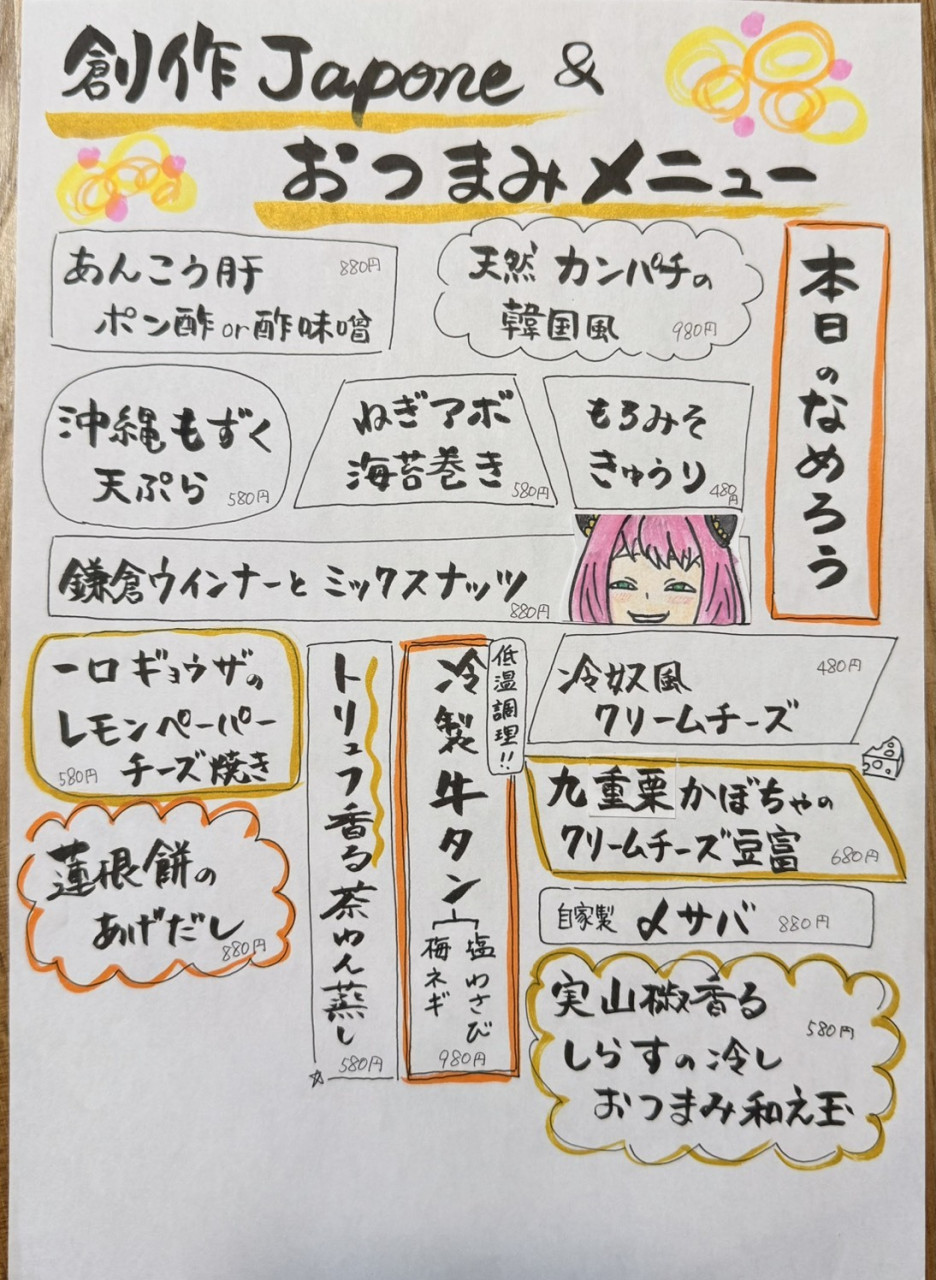 創作Japone &
おつまみメニュー
あんこう肝
880円
ポン酢or酢味噌
天然 カンパチの
韓国風
980円
本日のなめろう
沖縄もずく
天ぷら
580円
ねぎアボ
海苔巻き
580円
もろみそ
きゅうり
480円
鎌倉ウインナーとミックスナッツ
880円
一口ギョウザの
レモンペーパー
チーズ焼き
580円
トリュフ香る茶わん蒸し
580円
低温調理!!
冷製牛タン
塩わさび
梅ネギ
980円
冷奴風
480円
クリームチーズ
九重栗かぼちゃの
クリームチーズ豆富
680円
蓮根餅の
あげだし
880円
自家製 〆サバ 880円
実山椒香る
580円
しらすの冷し
おつまみ和え玉